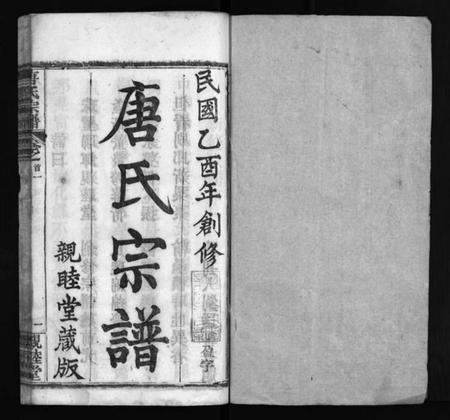 民國乙酉年創修
唐氏宗譜
親睦堂蔵版
唐氏宗譜
卷首
一
親睦堂